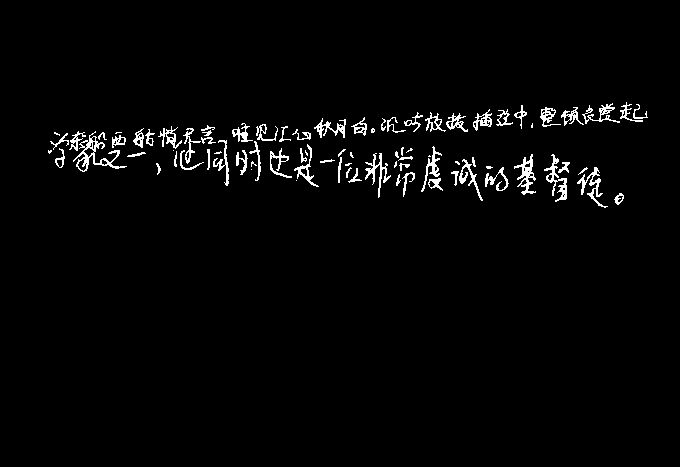 东船西舫悄无言,唯见江心秋月白。沉吟放拨插弦中,整顿衣裳起
学家之一,他同时也是一位非常虔诚的基督徒。